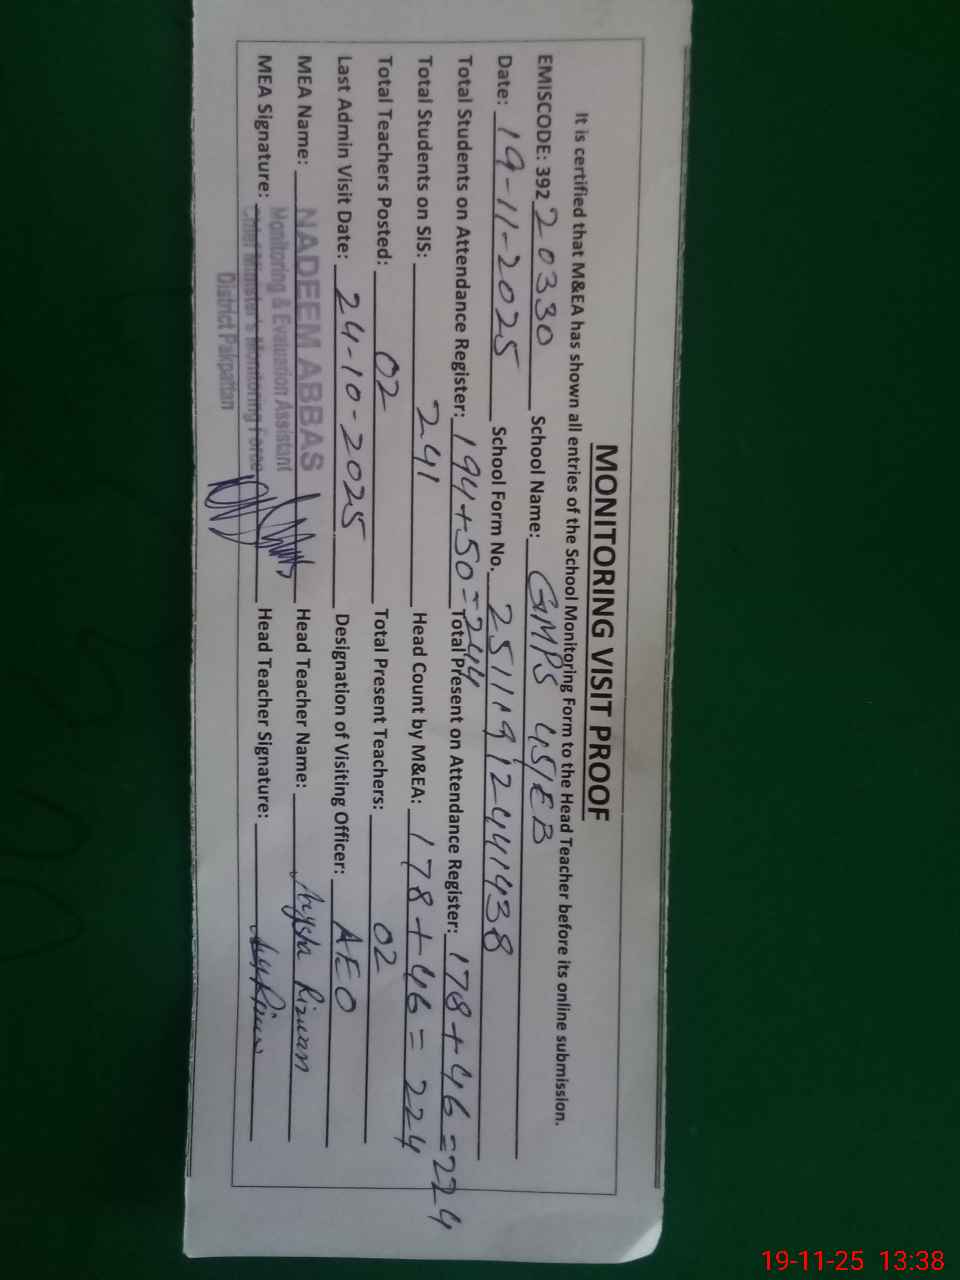 MONITORING VISIT PROOF
It is certified that M&EA has shown all entries of the School Monitoring Form to the Head Teacher before its online submission.
EMISCODE: 392 20330 School Name: GMPS 45/EB
Date: 19-11-2025 School Form No. 25111912441438
Total Students on Attendance Register: 194+50=244 Total Present on Attendance Register: 178+46=224
Total Students on SIS: 241 Head Count by M&EA: 178+46=224
Total Teachers Posted: 02 Total Present Teachers: 02
Last Admin Visit Date: 24-10-2025 Designation of Visiting Officer: AEO
MEA Name: NADEEM ABBAS Head Teacher Name: Rizwan
Monitoring & Evaluation Assistant
MEA Signature: Chief Minister's Monitoring Force Head Teacher Signature:
District Pakpattan
19-11-25 13:38